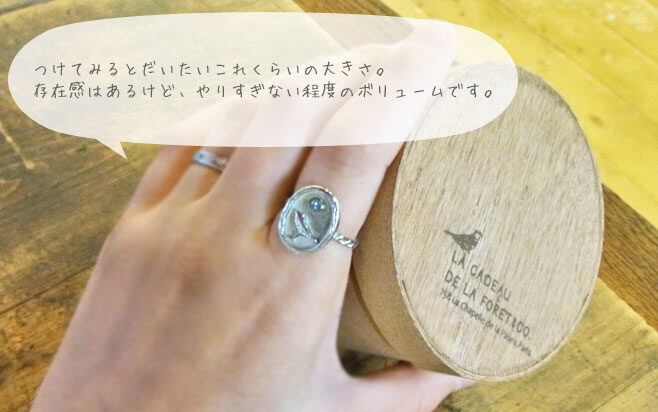 つけてみるとだいたいこれくらいの大きさ。
存在感はあるけど、やりすぎない程度のボリュームです。
LA CADEAU
DE LA FORET &CO.
La Chapelle de la
Paris.